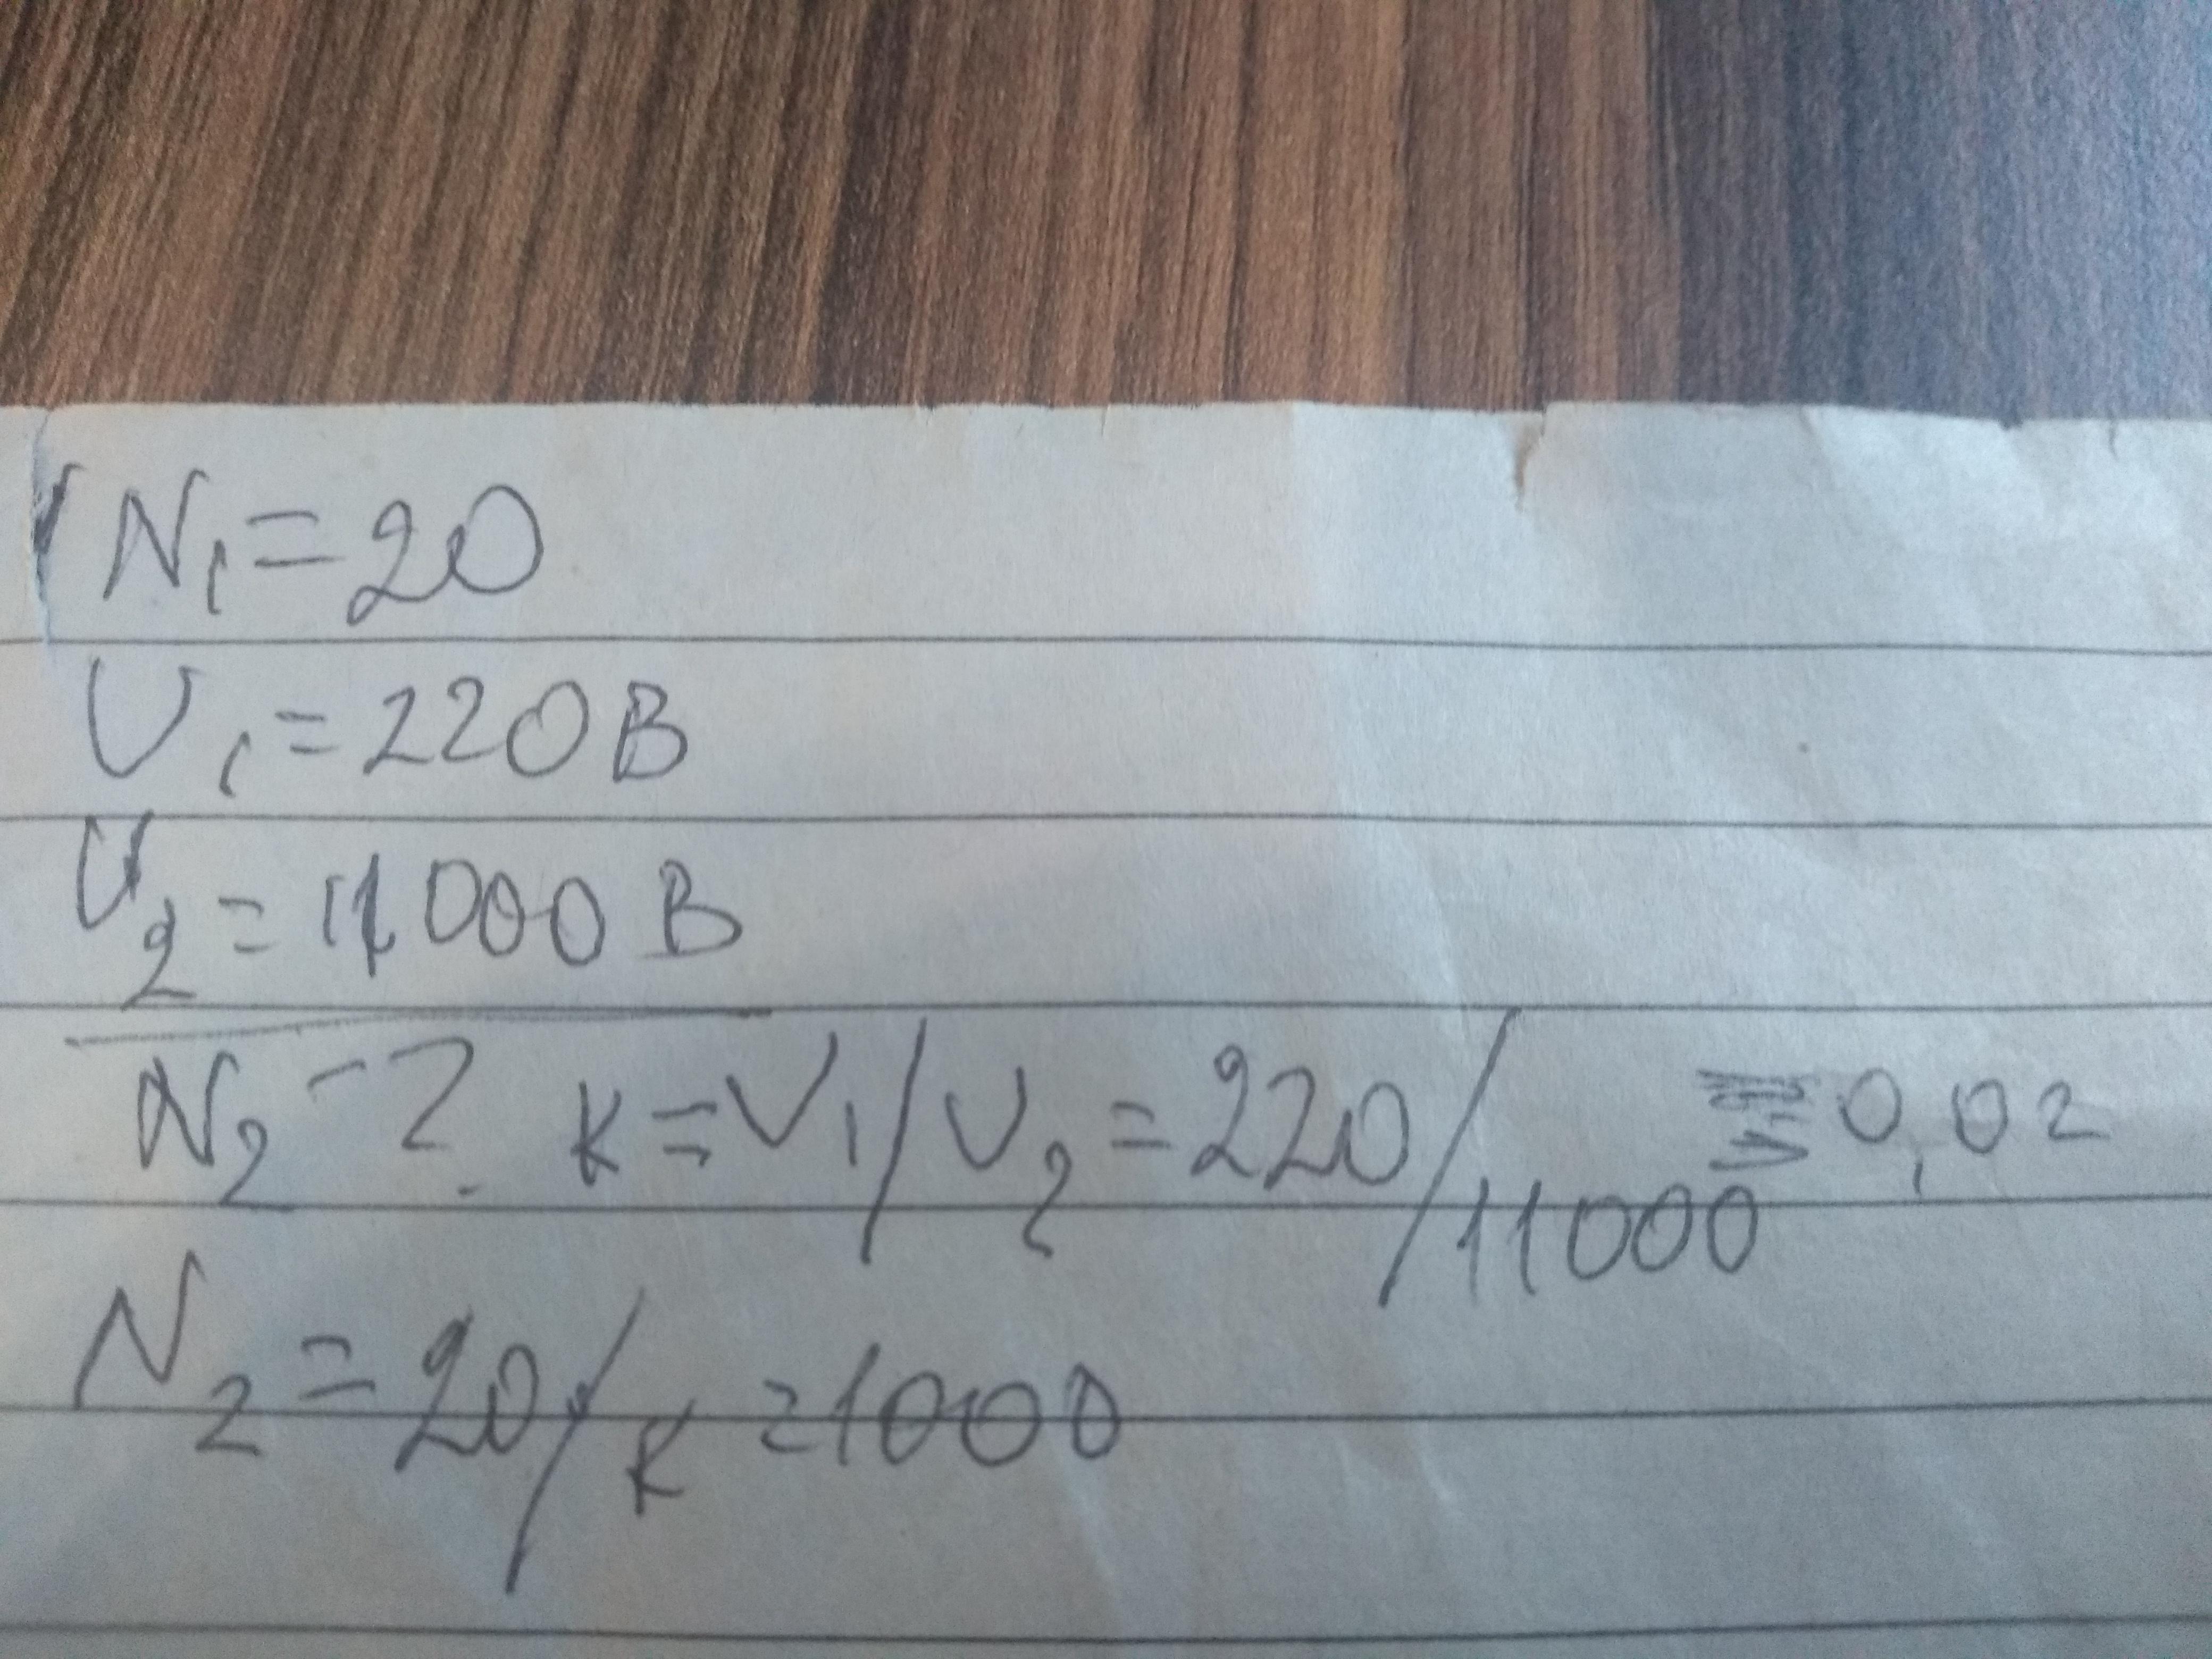 N₁=20
U₁=220В
U₂=11000В
N₂-? к=U₁/U₂=220/11000=0,02
N₂=20/к=1000